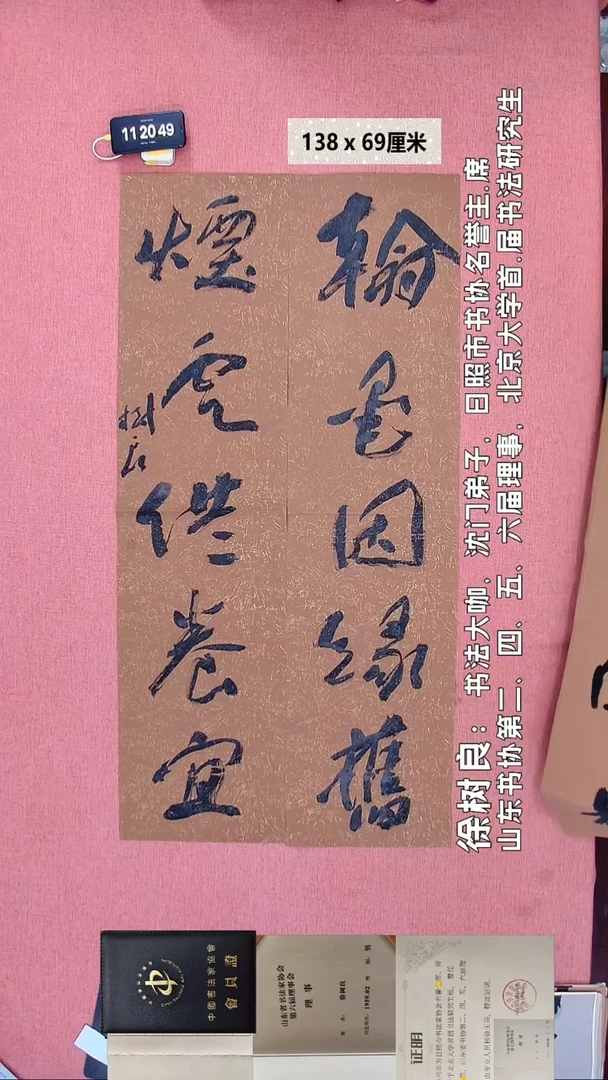 11 20 49
138 x 69厘米
翰墨因缘舊
煙雲供養宜
树良
徐树良：书法大咖，沈门弟子，日照市书协名誉主.席
山东书协第二、四、五、六届理事，北京大学首.届书法研究生
中國書法家協會
會員證
山东省书法家协会
第六届理事会
理事
徐树良
男
证明